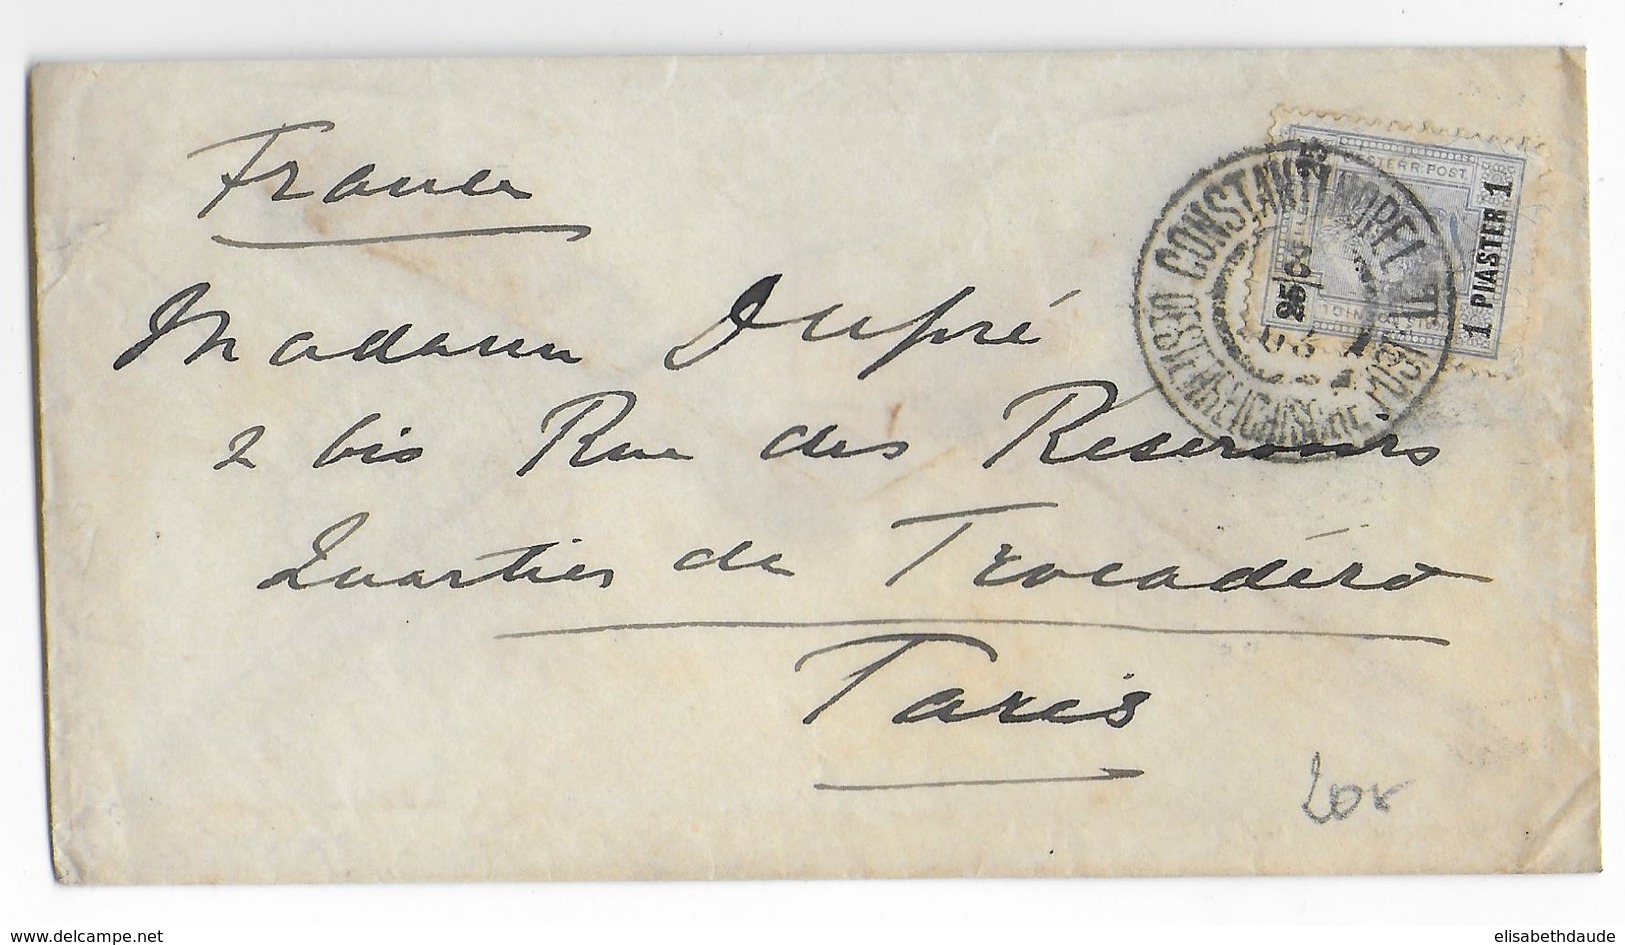 France
Madame Dupré
2 bis Rue des Reservoirs
Quartier du Trocadéro
Paris
CONSTANTINOPEL II
03
ÖSTERR. POST
25
1 PIASTER 1
20
www.delcampe.net
elisabethdaude